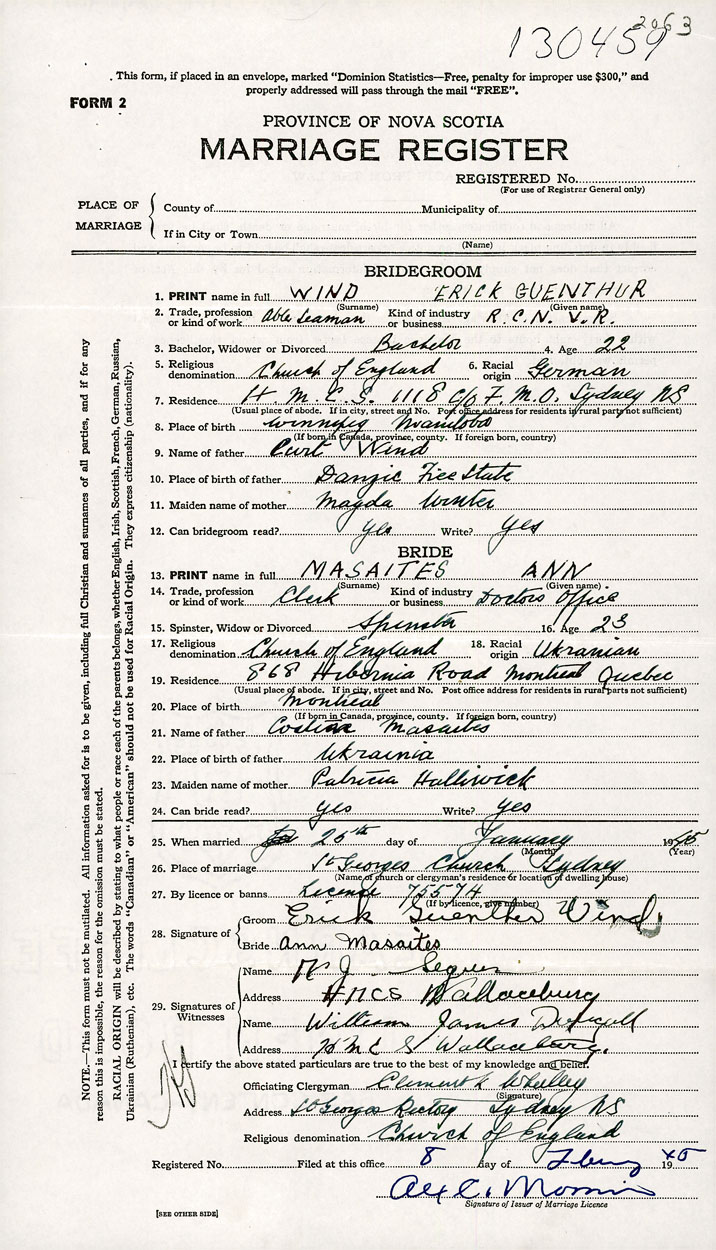 2063
130459
This form, if placed in an envelope, marked "Dominion Statistics—Free, penalty for improper use $300," and
properly addressed will pass through the mail "FREE".
FORM 2
PROVINCE OF NOVA SCOTIA
MARRIAGE REGISTER
REGISTERED No.
(For use of Registrar General only)
PLACE OF MARRIAGE
County of Municipality of
If in City or Town
(Name)
BRIDEGROOM
1. PRINT name in full WIND ERICK GUENTHUR
(Surname) (Given name)
2. Trade, profession or kind of work Able Seaman Kind of industry or business R.C.N.V.R.
3. Bachelor, Widower or Divorced Bachelor 4. Age 22
5. Religious denomination Church of England 6. Racial origin German
7. Residence H.M.C.S. 1118 C/O F.M.O. Sydney NS
(Usual place of abode. If in city, street and No. Post office address for residents in rural parts not sufficient)
8. Place of birth Winnipeg Manitoba
(If born in Canada, province, county. If foreign born, country)
9. Name of father Curt Wind
10. Place of birth of father Danzic Free State
11. Maiden name of mother Magda Winter
12. Can bridegroom read? yes Write? yes
BRIDE
13. PRINT name in full MASAITES ANN
(Surname) (Given name)
14. Trade, profession or kind of work Clerk Kind of industry or business Doctors Office
15. Spinster, Widow or Divorced Spinster 16. Age 23
17. Religious denomination Church of England 18. Racial origin Ukranian
19. Residence 868 Hibernia Road Montreal Quebec
(Usual place of abode. If in city, street and No. Post office address for residents in rural parts not sufficient)
20. Place of birth Montreal
(If born in Canada, province, county. If foreign born, country)
21. Name of father Masaites
22. Place of birth of father Ukrainia
23. Maiden name of mother Patricia Halliwick
24. Can bride read? yes Write? yes
25. When married 25th day of January 1945
(Month) (Year)
26. Place of marriage St Georges Church Sydney
(Name of church or clergyman's residence or location of dwelling house)
27. By licence or banns License 75574
(If by licence, give number)
28. Signature of
Groom Erick Guenther Wind
Bride Ann Masaites
29. Signatures of Witnesses
Name
Address HMCS Wallaceburg
Name William James
Address HMCS Wallaceburg.
I certify the above stated particulars are true to the best of my knowledge and belief.
Officiating Clergyman Whalley
(Signature)
Address St Georges Rectory Sydney NS
Religious denomination Church of England
Registered No. Filed at this office 8 day of 1945
Alex C.
Signature of Issuer of Marriage Licence
[SEE OTHER SIDE]
NOTE.—This form must not be mutilated. All information asked for is to be given, including full Christian and surnames of all parties, and if for any
reason this is impossible, the reason for the omission must be stated.
RACIAL ORIGIN will be described by stating to what people or race each of the parents belongs, whether English, Irish, Scottish, French, German, Russian,
Ukrainian (Ruthenian), etc. The words "Canadian" or "American" should not be used for Racial Origin. They express citizenship (nationality).